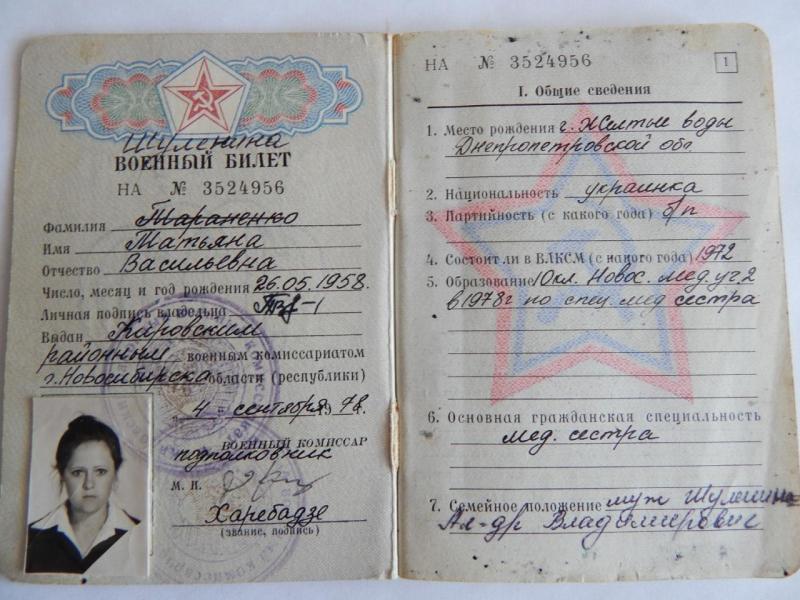 Шуленина
ВОЕННЫЙ БИЛЕТ
НА № 3524956
Фамилия Тараненко
Имя Татьяна
Отчество Васильевна
Число, месяц и год рождения 26.05.1958.
Личная подпись владельца
Выдан Кировским
районным военным комиссариатом
г. Новосибирска области (республики)
4 сентября 1978.
ВОЕННЫЙ КОМИССАР
подполковник
М. П.
Харебадзе
(звание, подпись)
НА № 3524956 1
I. Общие сведения
1. Место рождения г. Желтые воды
Днепропетровской обл
2. Национальность украинка
3. Партийность (с какого года) б/п
4. Состоит ли в ВЛКСМ (с какого года) 1972
5. Образование 10 кл. Новос. мед. уч. 2
в 1978 г по спец. мед сестра
6. Основная гражданская специальность
мед. сестра
7. Семейное положение муж Шуленин
Ал-др Владимирович